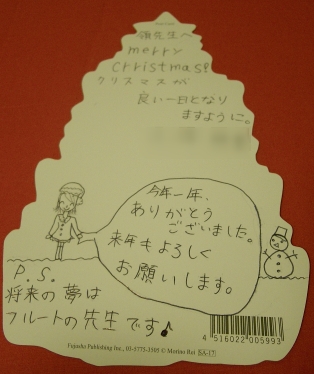 嶺先生へ
merry
crristmas!
クリスマスが
良い一日となり
ますように。
今年一年、
ありがとう
ございました。
来年もよろしく
お願いします。
P.S.
将来の夢は
フルートの先生です♪
Fujusha Publishing Inc., 03-5775-3505 © Morino Rei SA-17
4 516022 005993